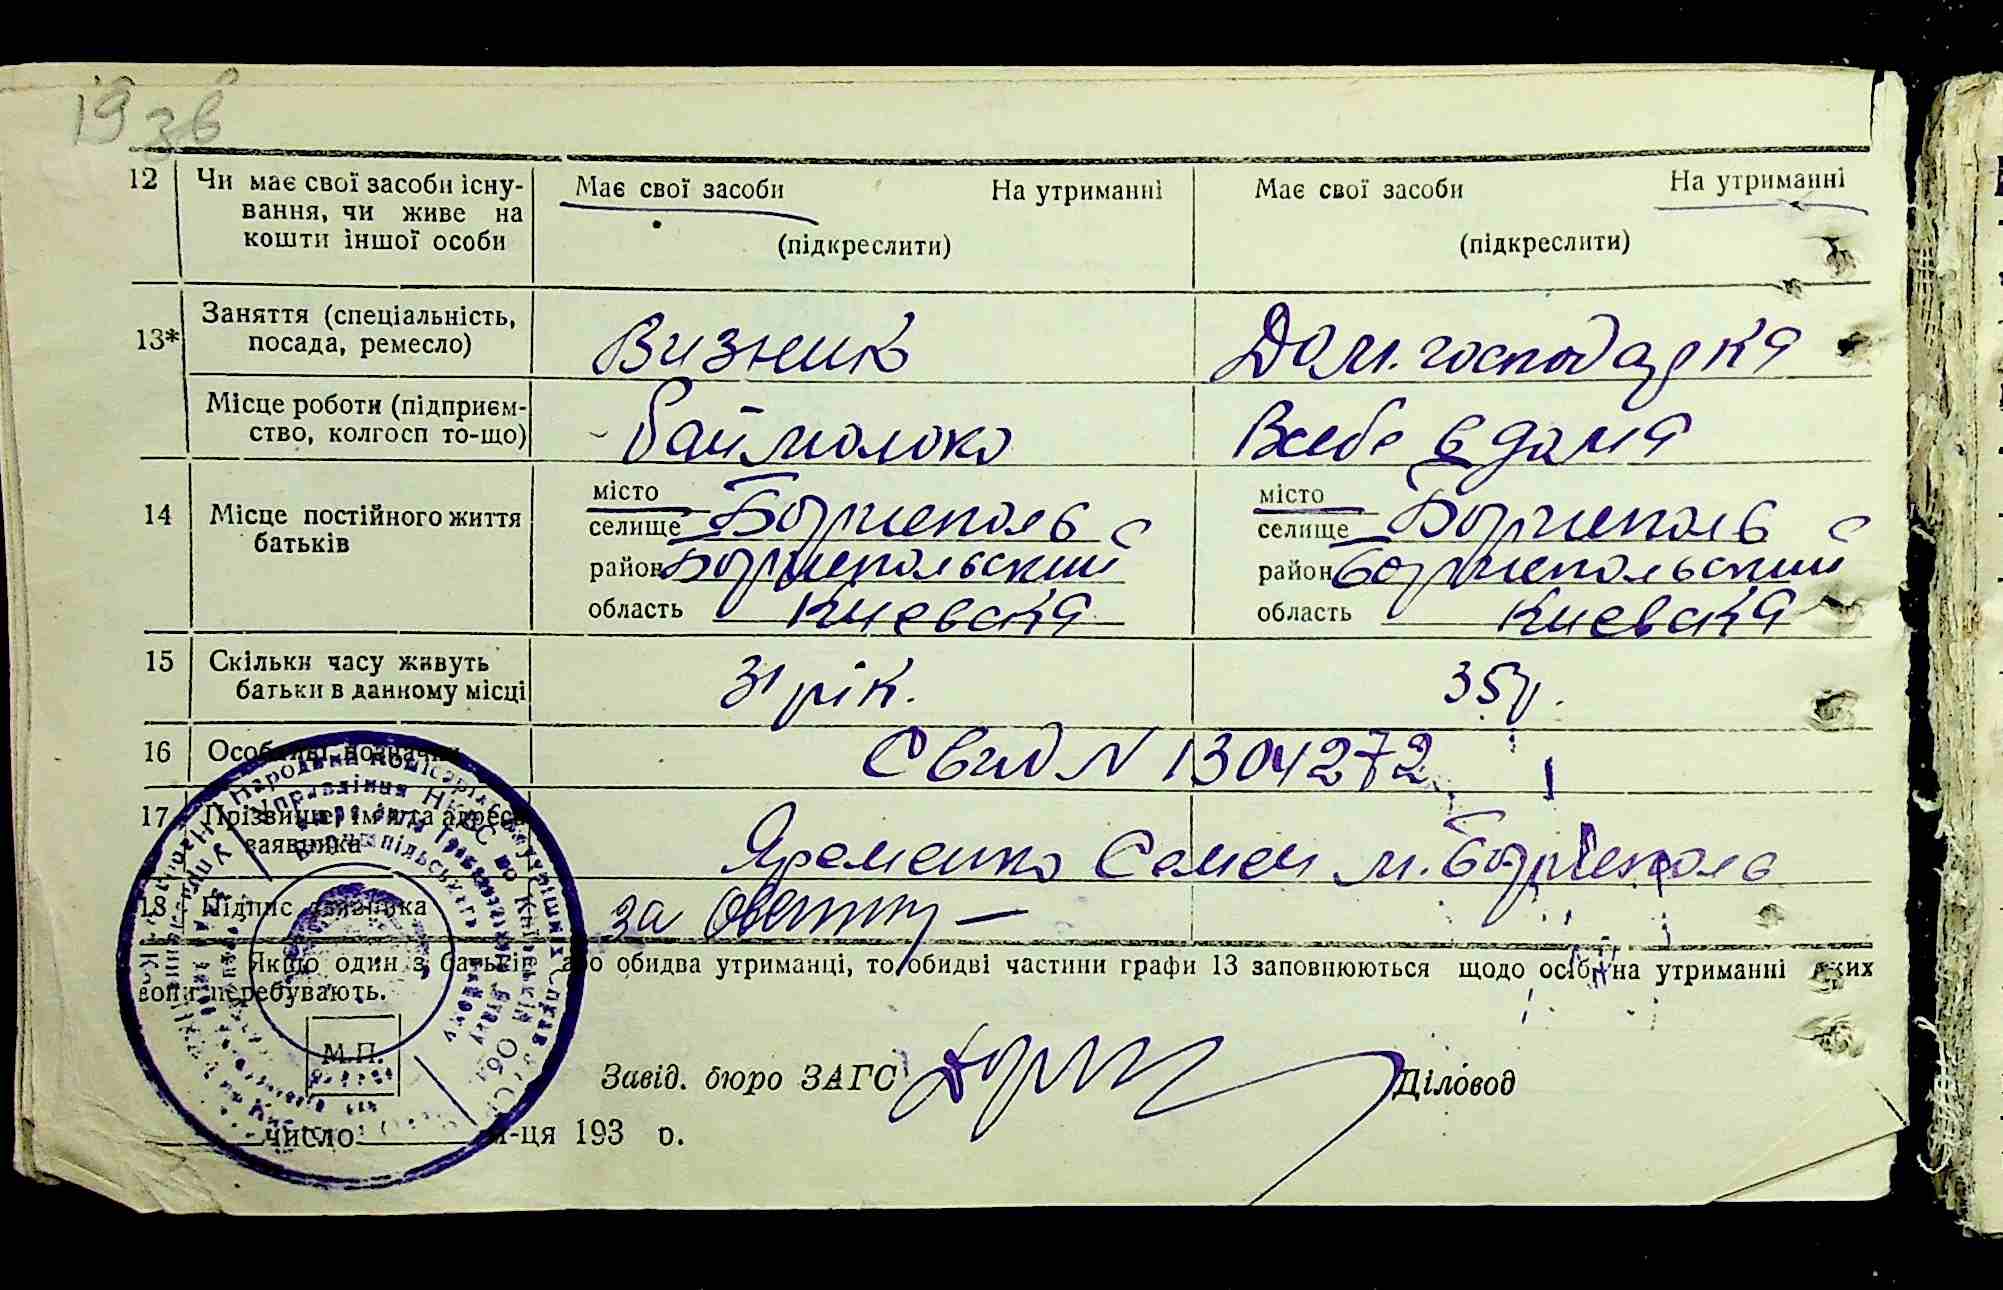 19 зв
12 Чи має свої засоби існу- Має свої засоби На утриманні Має свої засоби На утриманні
вання, чи живе на
кошти іншої особи (підкреслити) (підкреслити)
13* Заняття (спеціальність, посада, ремесло) Визник Дом. господарка
Місце роботи (підприєм- Раймолоко Всебе в дома
ство, колгосп то-що)
14 Місце постійного життя батьків
місто місто
селище Борисполь селище Борисполь
район Бориспольский район Бориспольский
область Киевска область Киевска
15 Скільки часу живуть 31 рік. 35 р.
батьки в данному місці
16 Особливі нозначки Свид N 1304272
17 Прізвище, ім'я та адреса
заявника Яременко Семен м. Борисполь
18 Підпис заявника за
Якщо один з батьків або обидва утриманці, то обидві частини графи 13 заповнюються щодо осіб, на утриманні яких
вони перебувають.
М.П.
Завід. бюро ЗАГС Діловод
число м-ця 193 р.